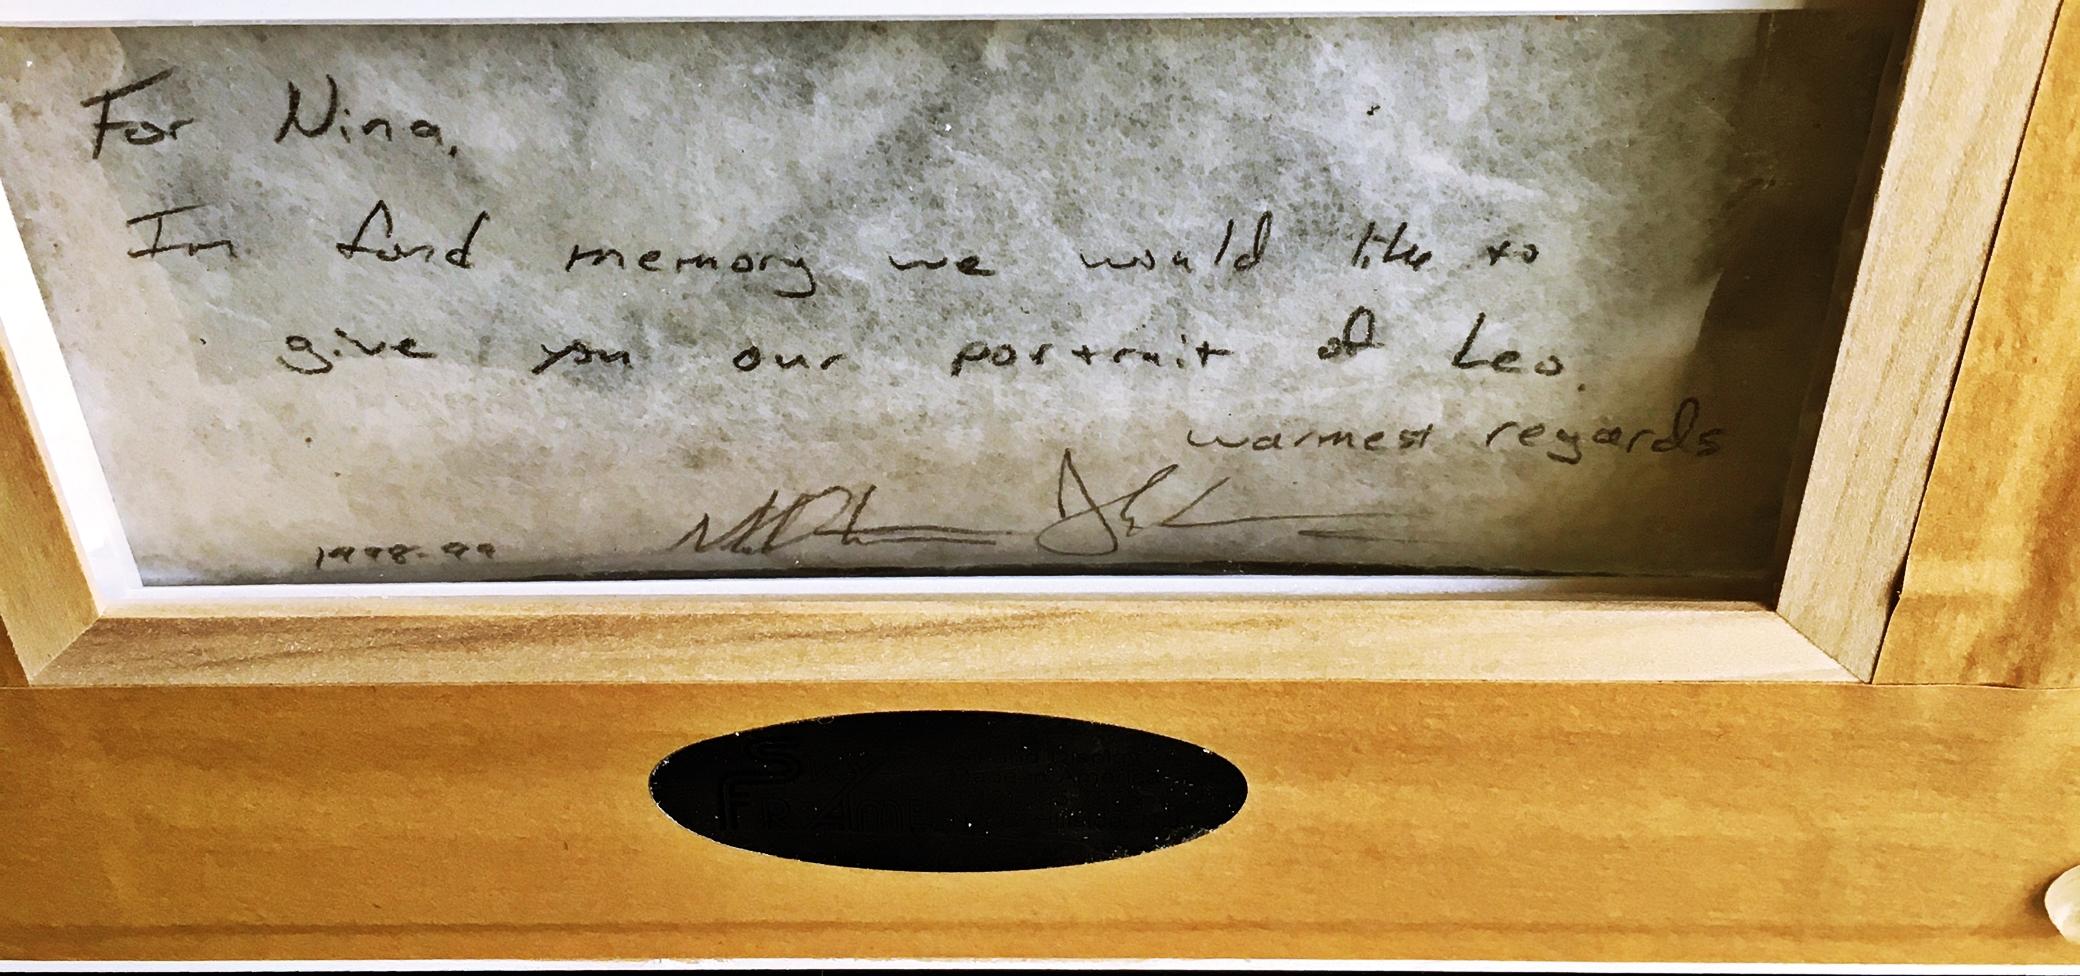 For Nina,
In fond memory we would like to
give you our portrait of Leo.
warmest regards
1998-99
SKY
FRAME